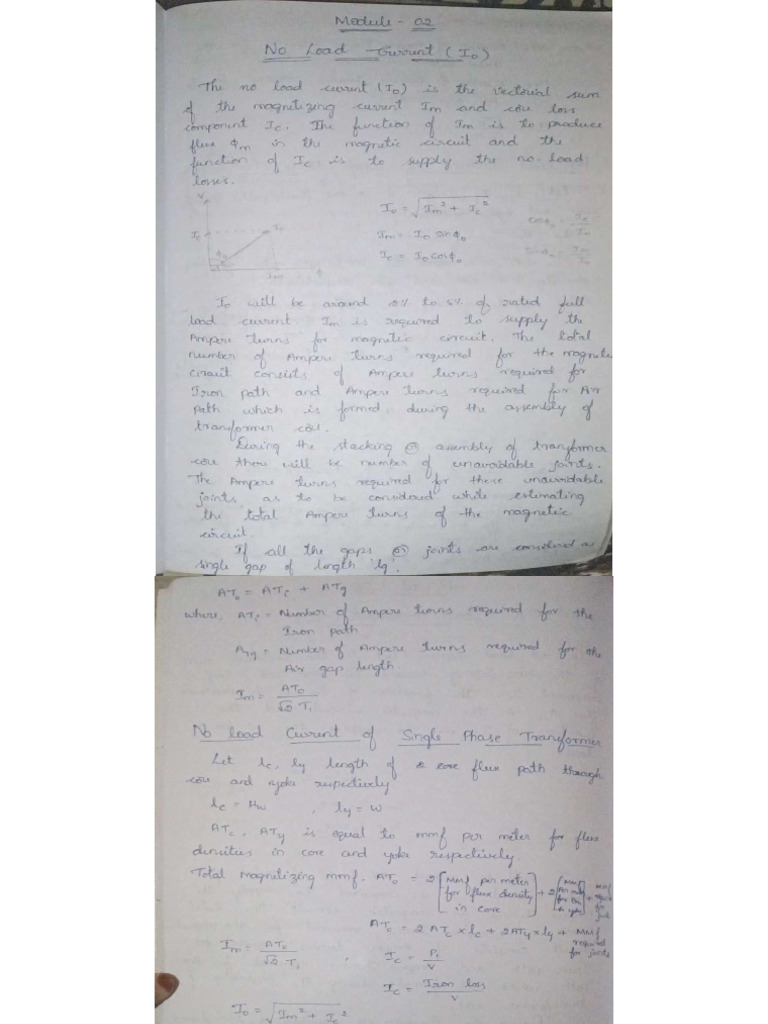 Module - 02
No Load Current (I₀)
The no load current (I₀) is the vectorial sum
of the magnetizing current Im and core loss
component Ic. The function of Im is to produce
flux ϕm in the magnetic circuit and the
function of Ic is to supply the no-load
losses.
V
Ic
I₀
ϕ₀
Im
ϕ
I₀ = √(Im² + Ic²)
Im = I₀ sinϕ₀
Ic = I₀ cosϕ₀
cosϕ₀ = Ic/
sinϕ₀ = Im/
I₀ will be around to 5% of rated full
load current. Im is required to supply the
Ampere turns for magnetic circuit. The total
number of Ampere turns required for the magnetic
circuit consists of Ampere turns required for
Iron path and Ampere turns required for Air
path which is formed during the assembly of
transformer
During the stacking @ assembly of transformer
core there will be number of unavoidable joints.
The Ampere turns required for these unavoidable
joints as to be considered while estimating
the total Ampere turns of the magnetic
circuit.
If all the gaps @ joints are considered as
single gap of length 'lg'.
AT₀ = ATi + ATg
where, ATi = Number of Ampere turns required for the
Iron path
ATg = Number of Ampere turns required for the
Air gap length
Im = AT₀/(√2 T₁)
No load Current of Single Phase Transformer
Let lc, ly length of core flux path through
core and yoke respectively
lc = Hw , ly = W
ATc, ATy is equal to mmf per meter for flux
densities in core and yoke respectively
Total magnetizing mmf, AT₀ = 2 [MMf per meter for flux density in core] + 2 [MMf per for in yoke] + MMf for
AT₀ = 2 ATc × lc + 2 ATy × ly + MMf required for joints
Im = AT₀/(√2 T₁) , Ic = Pi/V
Ic = Iron loss/V
I₀ = √(Im² + Ic²)